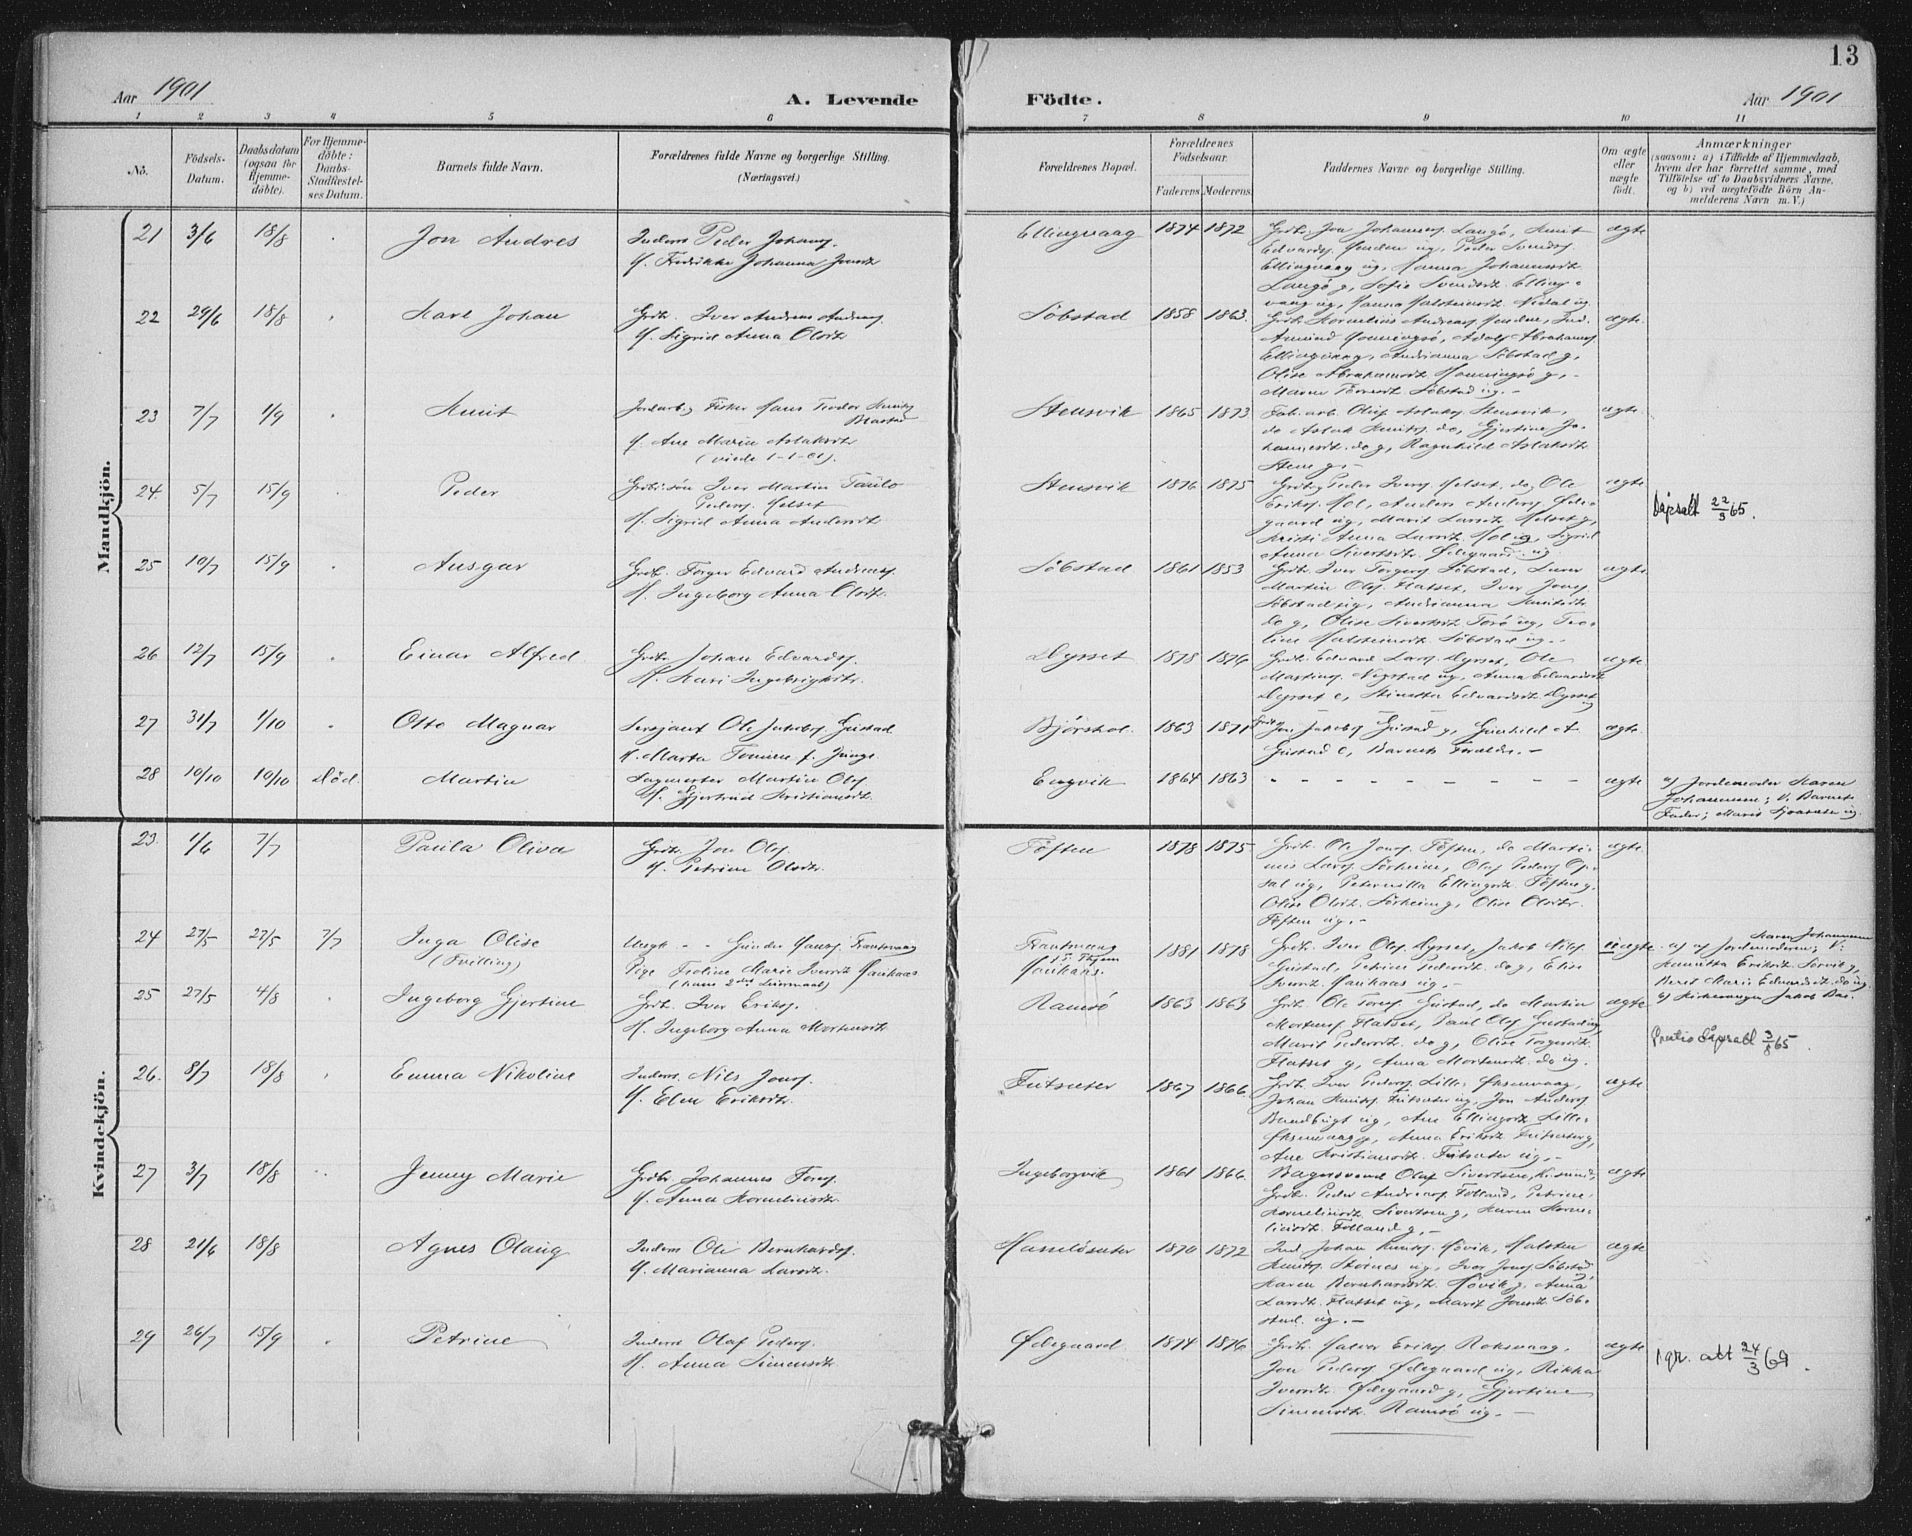 13
Aar 1901
A. Levende Födte.
Aar 1901
1 2 3 4 5 6 7 8 9 10 11
No.
Födsels-
Datum.
Daabsdatum
(ogsaa for
Hjemme-
döbte).
For Hjemme-
döbte:
Daabs-
Stadfæstel-
ses Datum.
Barnets fulde Navn.
Forældrenes fulde Navne og borgerlige Stilling.
(Næringsvei.)
Forældrenes Bopæl.
Forældrenes
Födselsaar.
Faderens.
Moderens.
Faddernes Navne og borgerlige Stilling.
Om ægte
eller
uægte
födt.
Anmærkninger
(saasom: a) i Tilfælde af Hjemmedaab,
hvem der har forrettet samme, med
Tilföielse af to Daabsvidners Navne,
og b) ved uægtefödte Börn An-
melderens Navn m. V.)
Mandkjön.
21 3/6 18/8 Jon Andres
Inders Peder Johans.
H. Fredrikke Johanna Jonsdt.
Ellingvaag 1874 1872
Grdb. Jon Johannes. Langö, Knut
Edvards. Henden ug, Peder Svends.
Ellingvaag ug, Hanna Johannesdt.
Langö g, Sofie Svendsdt. Elling-
vaag ug, Hanna Halsteinsdt. Nidal ug.
ægte
22 29/6 18/8 Karl Johan
Grdb. Iver Andreas Anders.
H. Sigrid Anna Olsdt.
Söbstad 1858 1863
Grdb. Kornelius Andreas. Henden, Ind.
Amund Honningsö, Adolf Abrahams.
Ellingvaag, Andrianna Söbstad g,
Olise Abrahamsdt. Honningsö g,
Maren Söbstad ug. -
ægte
23 7/7 1/9 Knut
Jordarb. og Fisker Hans Teodor Knuts.
H. Ane Marie Aslaksdt.
(viede 1-1-01).
Stensvik 1865 1873
Fab. arb. Oluf Aslaks. Stensvik,
do Aslak Knuts. do, Gjertine Jo-
hannesdt. do g, Ragnhild Aslaksdt.
Stene g. -
ægte
24 5/7 15/9 Peder
Grdbr.søn Iver Martin Paulo
Peders. Helset
H. Sigrid Anna Andersdt.
Stensvik 1876 1875
Grdb. Peder Ivers. Helset, do Ole
Eriks. Hol, Anders Anders. Øde-
gaard ug, Marit Larsdt. Helset g,
Kristi Anna Larsdt. Hol ug, Sigrid
Anna Sivertsdt. Ødegaard ug
ægte
Dåpsatt 22/3 65.
25 10/7 15/9 Ansgar
Grdb. Torger Edvard Andreas.
H. Ingeborg Anna Olsdt.
Söbstad 1861 1853
Grdb. Iver Torgers. Söbstad, Lærer
Martin Ols. Flatset, Iver Jons.
Söbstad ug, Andrianna Knutsdt.
do g, Olise Sivertsdt. Torö ug,
Halsteinsdt. Söbstad ug.
ægte
26 12/7 15/9 Einar Alfred
Grdb. Johan Edvards.
H. Kari Ingebrigtsdt.
Dyrset 1878 1876
Grdb. Edvard Lars. Dyrset, Ole
Martins. Nigstad ug, Anna Edvardsdt.
Dyrset e, Stinetta Edvardsdt. Dyrset
ug
ægte
27 31/7 1/10 Otto Magnar
Sersjant Ole Jakobs. Gustad
H. Marta Tomine f. Junge
Bjørskol. 1863 1871
Grdb. Jon Jakobs. Gustad g, Gunhild
Gustad e, Barnets Forældre. -
ægte
28 10/10 10/10 död Martin
Sagmester Martin Ols.
H. Gjertrud Kristiansdt.
Engvik 1864 1863
- - - - - - - - -
ægte
a) Jordemoder Karen
Johannesen; V. Barnets
Fader; Marit ug.
Kvindekjön.
23 1/6 7/7 Paula Oliva
Grdb. Jon Ols.
H. Petrine Olsdt.
Töften 1878 1875
Grdb. Ole Jons. Töften, do Marti-
nus Lars. Sörheim, Olaf Peders. Op-
sal ug, Peternilla Ellingsdt. Töften g,
Olise Olsdt. Sörheim g, Olise Olsdt.
Töften ug. -
ægte
24 27/5 27/5 7/7 Inga Olise
(Tvilling)
Ungk. Gunder Hans. Trantevaag
Pige Troline Marie Iversdt. Haukaas
(hans 2det Leiermaal)
Haukaas. 1881 1878
Grdb. Iver Ols. Dyrset, Jakob Nils.
Gustad, Petrine Pedersdt. do g, Elise
Iversdt. Haukaas ug. -
uægte
a) af Jordemoderen Karen Johannesen; V:
Eriksdt. Sörvik g,
Beret Marie Edvardsdt. do ug.
b) Kirkesanger Jakob Bae.
25 27/5 4/8 Ingeborg Gjertine
Grdb. Iver Eriks.
H. Ingeborg Anna Mortensdt.
Ramsö 1863 1863
Grdb. Ole Tores. Gustad, do Martin
Mortens. Flatset, Paul Ols. Gustad ug,
Marit Pedersdt. do g, Olise Torgersdt.
Flatset g, Anna Mortensdt. do ug.
ægte
Gratis dåpsatt 3/8 65.
26. 8/7 18/8 Emma Nikoline
Inders. Nils Jons.
H. Elen Eriksdt.
Futsæter 1867 1866
Grdb. Iver Peders. Lille-Øksenvaag,
Johan Knuts. Futsæter ug, Jon Anders.
Sandbugt ug, Ane Ellingsdt. Lille-
Øksenvaag g, Anna Eriksdt. Futsæter g,
Ane Kristiansdt. Futsæter ug. -
ægte
27 3/7 18/8 Jenny Marie
Grdbr. Johannes Tores.
H. Anna Korneliusdt.
Ingeborgvik 1861 1866
Bagersvend Olaf Sivertsen, Kr.sund,
Grdb. Peder Andreas. Folland, Petrine
Korneliusdt. Sivertsen g, Karen Korne-
liusdt. Folland g. -
ægte
28 21/6 18/8 Agnes Olaug
Inders Ole Bernhards.
H. Marianna Larsdt.
Hasselösæter 1870 1872
Ind. Johan Knuts. Hövik, Halsten
Knuts. Steines ug, Iver Jons. Söbstad
Karen Bernhardsdt. Hövik g, Anna
Larsdt. Flatset ug, Marit Jonsdt. Söb-
stad. ug. -
ægte
29 26/7 15/9 Petrine
Inders Olaf Peders.
H. Anna Simensdt.
Ødegaard 1874 1876
Grdb. Halvor Eriks. Roksvaag,
Jon Peders. Ødegaard ug, Rikka
Iversdt. Ødegaard g, Gjertine
Simensdt. Ramsö ug. -
ægte
1 gr. att 24/3 69.